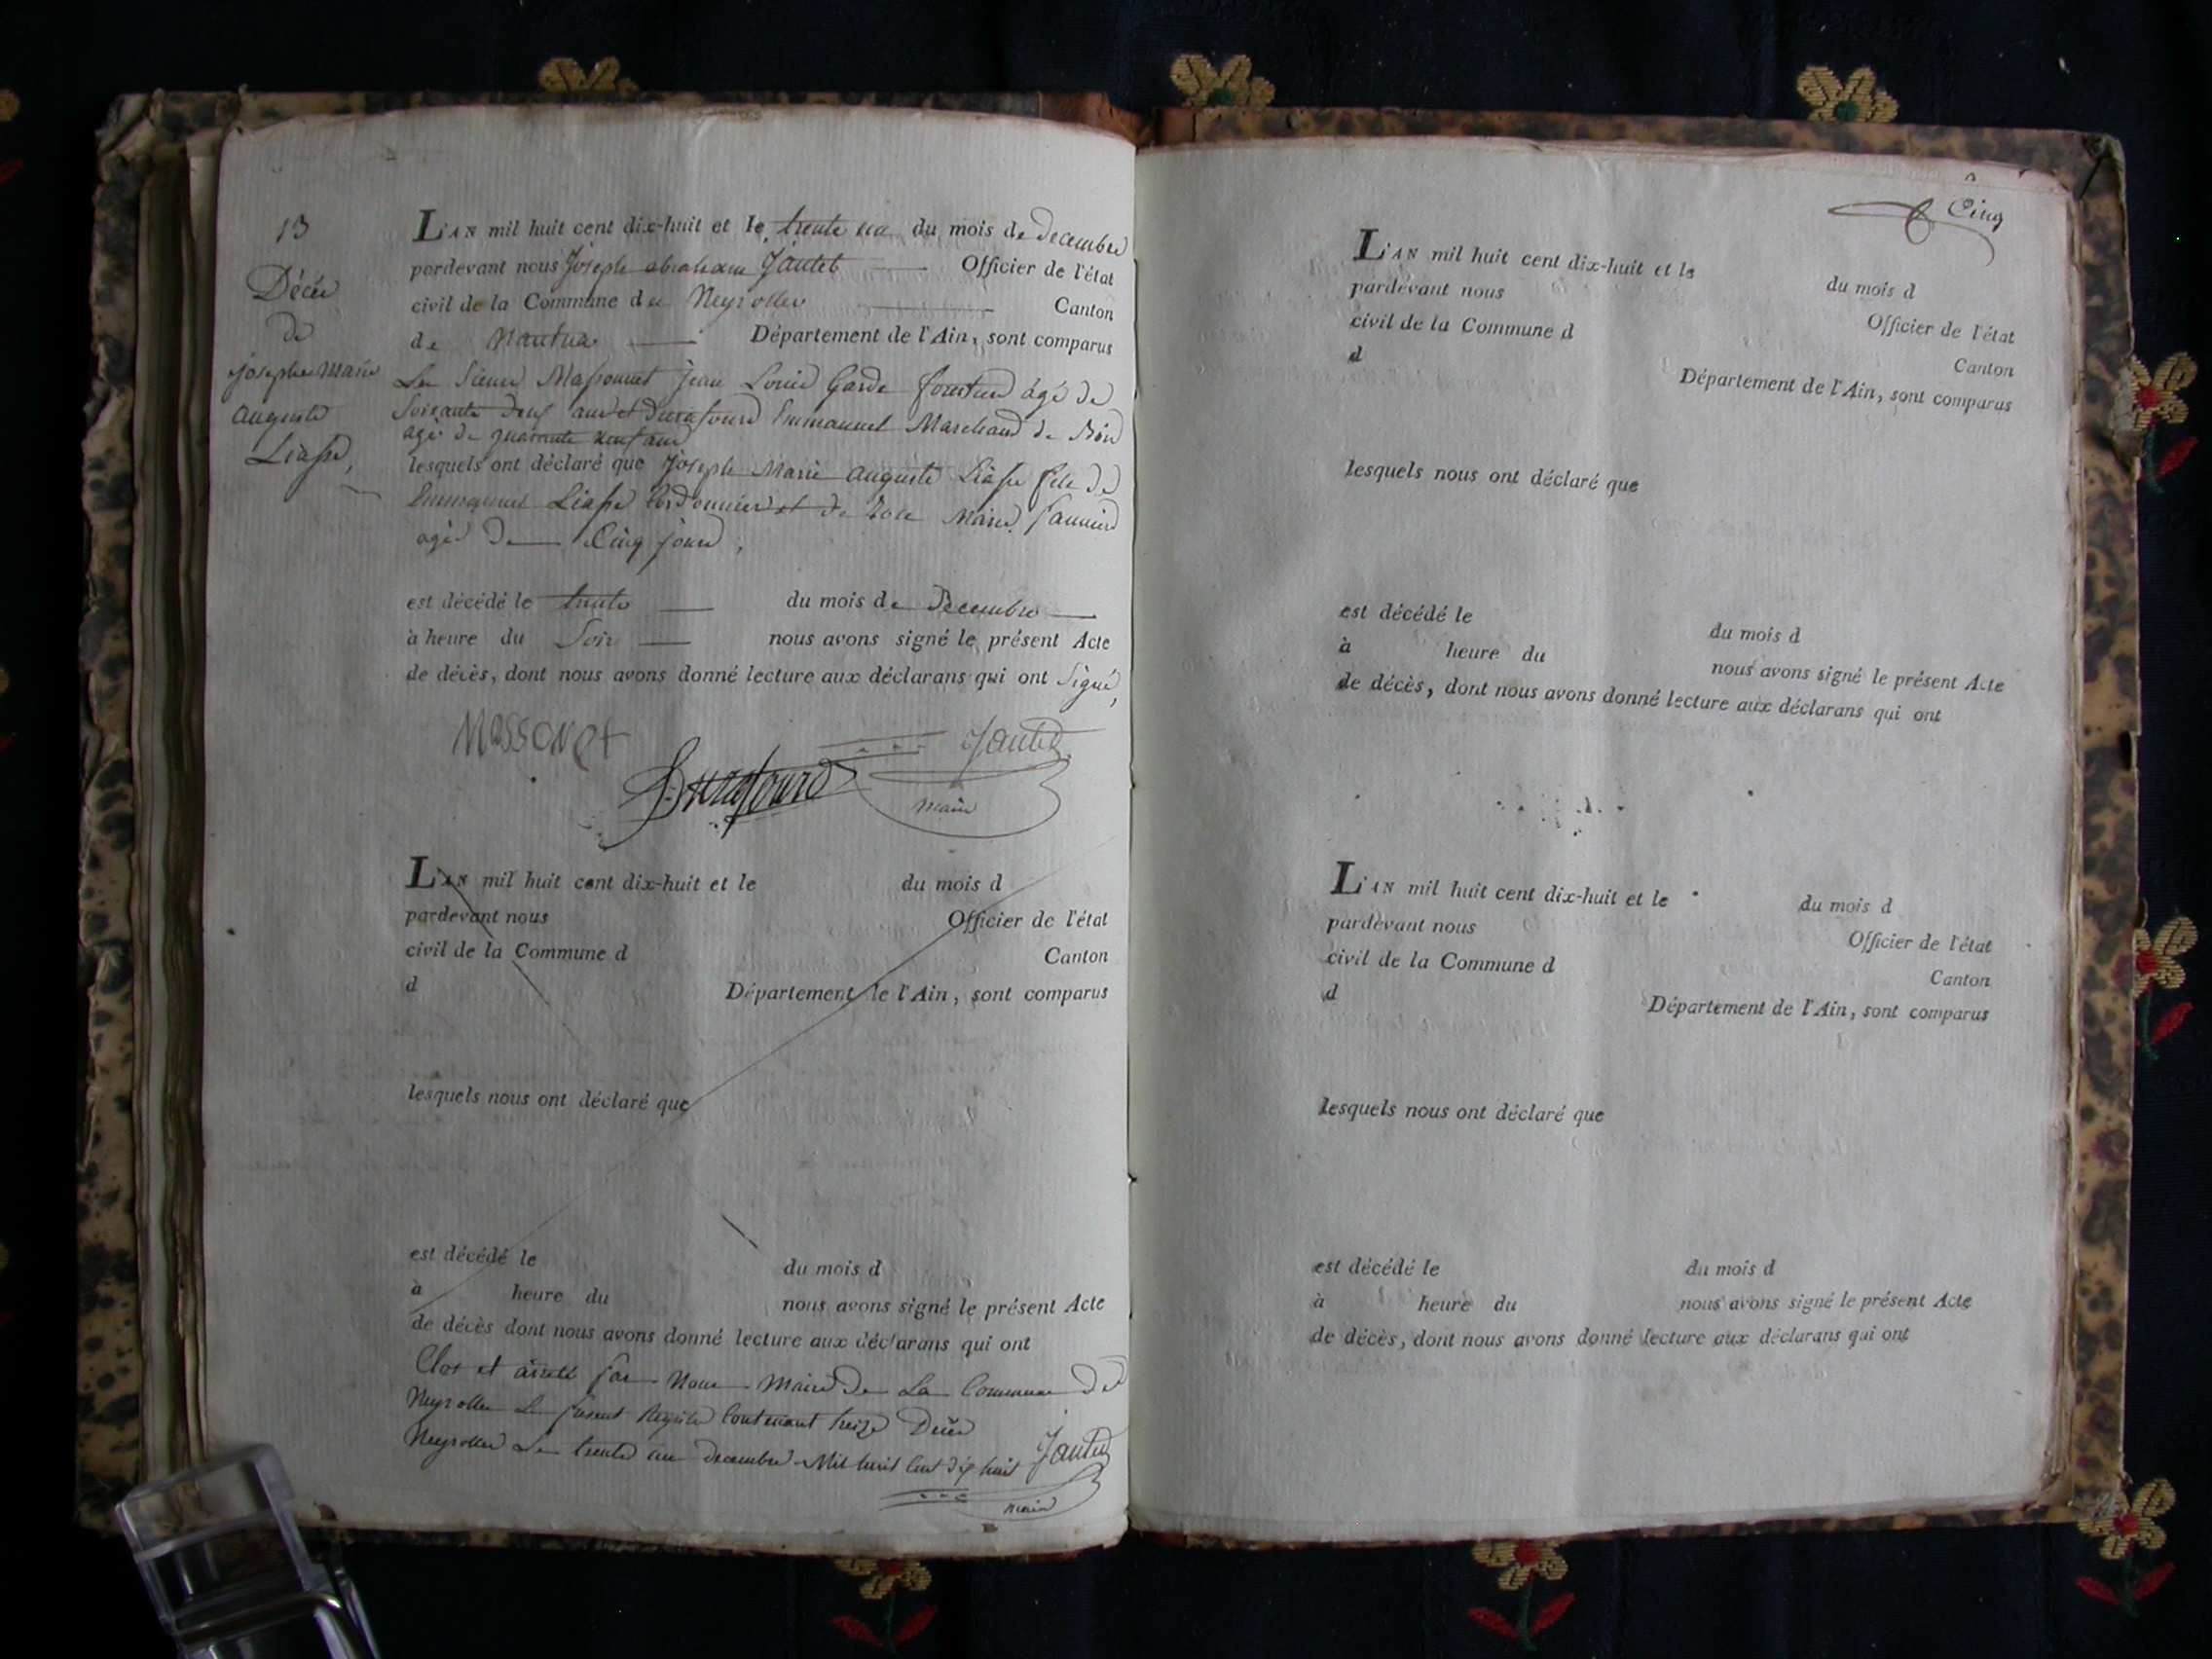 13
Décès
de
Joseph Marie
auguste
Liasse,
L'AN mil huit cent dix-huit et le trente un du mois de decembre
pardevant nous Joseph abraham Jantet Officier de l'état
civil de la Commune de Neyrolles Canton
de Nantua Département de l'Ain, sont comparus
Le Sieur Massonnet Jean Louis Garde forestier agé de
Soixante deux ans et Durafourd Emmanuel Marchand de Bois
agé de quarante neuf ans
lesquels ont déclaré que Joseph Marie auguste Liasse fils de
Emmanuel Liasse Cordonnier et de Marie
agé de Cinq jours,
est décédé le trente du mois de Decembre
à heure du Soir nous avons signé le présent Acte
de décès, dont nous avons donné lecture aux déclarans qui ont Signé,
Massonet
Jantet
Durafourd
maire
L'AN mil huit cent dix-huit et le du mois d
pardevant nous Officier de l'état
civil de la Commune d Canton
d Département de l'Ain, sont comparus
lesquels nous ont déclaré que
est décédé le du mois d
à heure du nous avons signé le présent Acte
de décès dont nous avons donné lecture aux déclarans qui ont
Clos et arrêté par Nous Maire de La Commune de
Neyrolles Le présent Registre Contenant treize Décès
Neyrolles Le trente un decembre Mil huit Cent dix huit Jantet
maire
Cinq
L'AN mil huit cent dix-huit et le du mois d
pardevant nous Officier de l'état
civil de la Commune d Canton
d Département de l'Ain, sont comparus
lesquels nous ont déclaré que
est décédé le du mois d
à heure du nous avons signé le présent Acte
de décès, dont nous avons donné lecture aux déclarans qui ont
L'AN mil huit cent dix-huit et le du mois d
pardevant nous Officier de l'état
civil de la Commune d Canton
d Département de l'Ain, sont comparus
lesquels nous ont déclaré que
est décédé le du mois d
à heure du nous avons signé le présent Acte
de décès, dont nous avons donné lecture aux déclarans qui ont